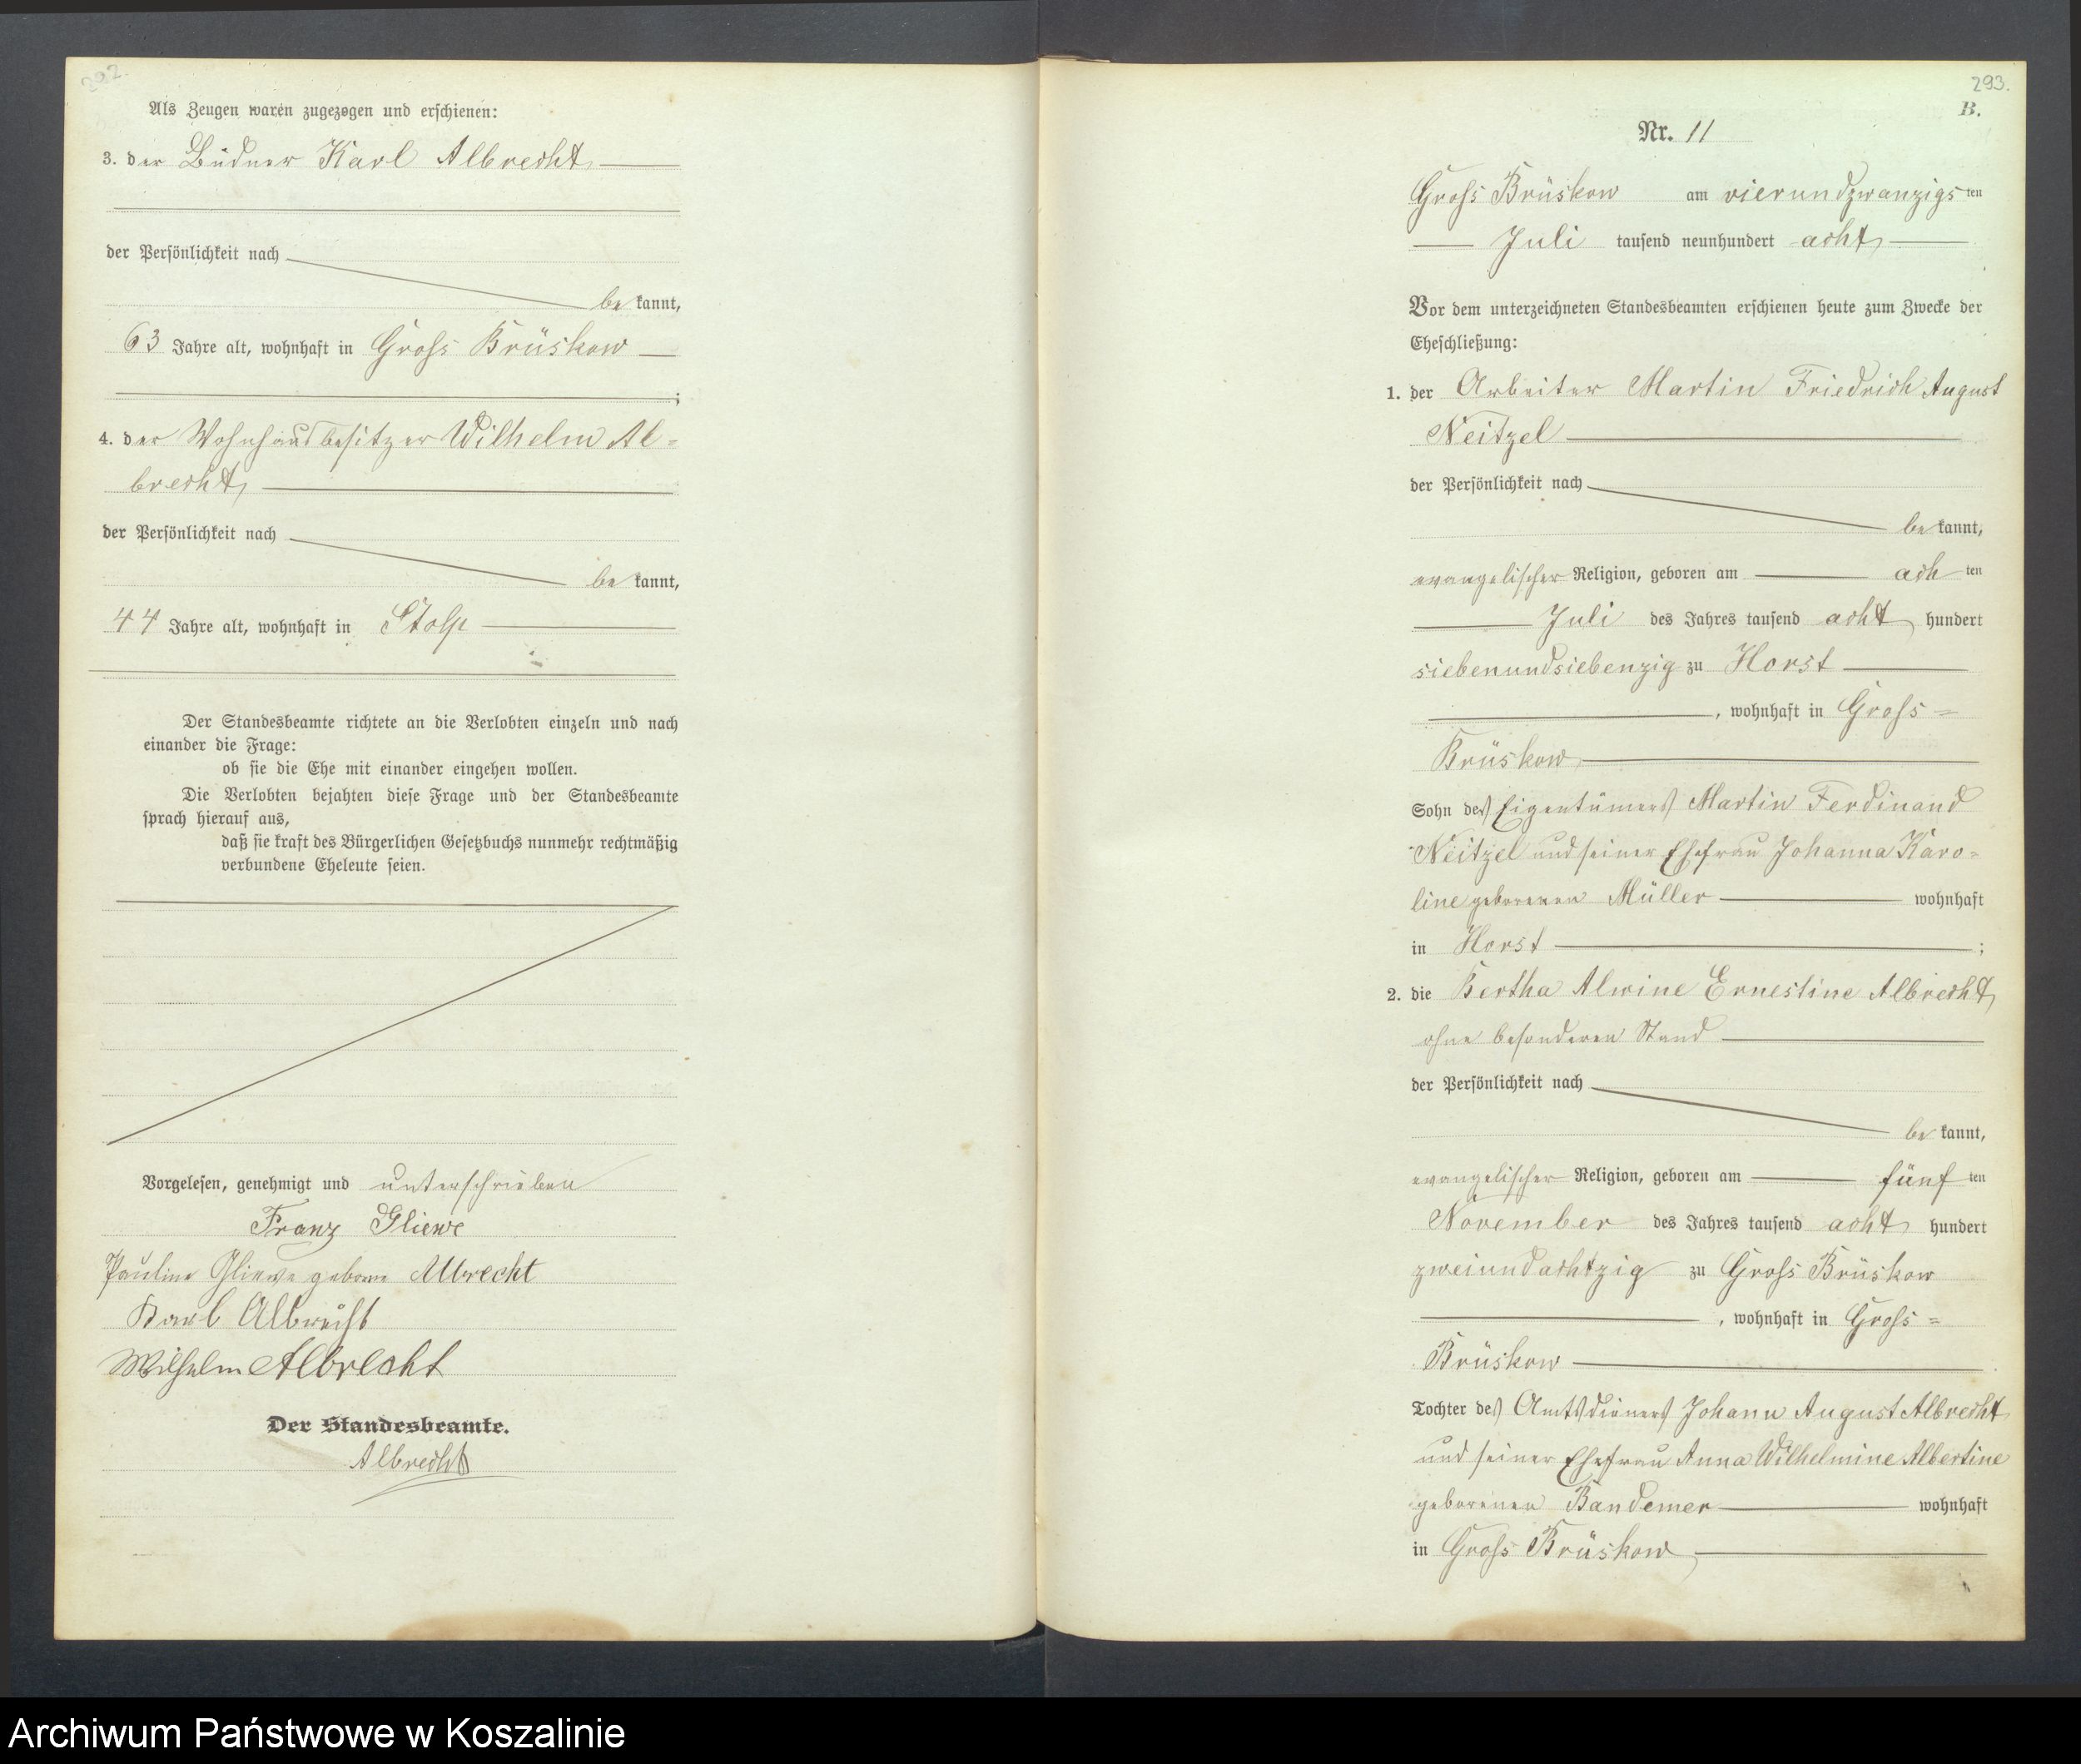 292.
Als Zeugen waren zugezogen und erschienen:
3. der Büdner Karl Albrecht
der Persönlichkeit nach
be kannt,
63 Jahre alt, wohnhaft in Groß Brüskow
;
4. der Wohnhausbesitzer Wilhelm Al=
brecht
der Persönlichkeit nach
be kannt,
44 Jahre alt, wohnhaft in Stolp
Der Standesbeamte richtete an die Verlobten einzeln und nach
einander die Frage:
ob sie die Ehe mit einander eingehen wollen.
Die Verlobten bejahten diese Frage und der Standesbeamte
sprach hierauf aus,
daß sie kraft des Bürgerlichen Gesetzbuchs nunmehr rechtmäßig
verbundene Eheleute seien.
Vorgelesen, genehmigt und unterschrieben
Franz Gliewe
Pauline Gliewe geborene Albrecht
Karl Albrecht
Wilhelm Albrecht
Der Standesbeamte.
Albrecht
293.
B.
Nr. 11
Groß Brüskow am vierundzwanzigs ten
Juli tausend neunhundert acht
Vor dem unterzeichneten Standesbeamten erschienen heute zum Zwecke der
Eheschließung:
1. der Arbeiter Martin Friedrich August
Neitzel
der Persönlichkeit nach
be kannt,
evangelischer Religion, geboren am ach ten
Juli des Jahres tausend acht hundert
siebenundsiebenzig zu Horst
, wohnhaft in Groß=
Brüskow
Sohn des Eigentümers Martin Ferdinand
Neitzel und seiner Ehefrau Johanna Karo=
line geborenen Müller wohnhaft
in Horst ;
2. die Bertha Alwine Ernestine Albrecht,
ohne besonderen Stand
der Persönlichkeit nach
be kannt,
evangelischer Religion, geboren am fünf ten
November des Jahres tausend acht hundert
zweiundachtzig zu Groß Brüskow
, wohnhaft in Groß=
Brüskow
Tochter des Amtsdieners Johann August Albrecht
und seiner Ehefrau Anna Wilhelmine Albertine
geborenen Bandemer wohnhaft
in Groß Brüskow
Archiwum Państwowe w Koszalinie